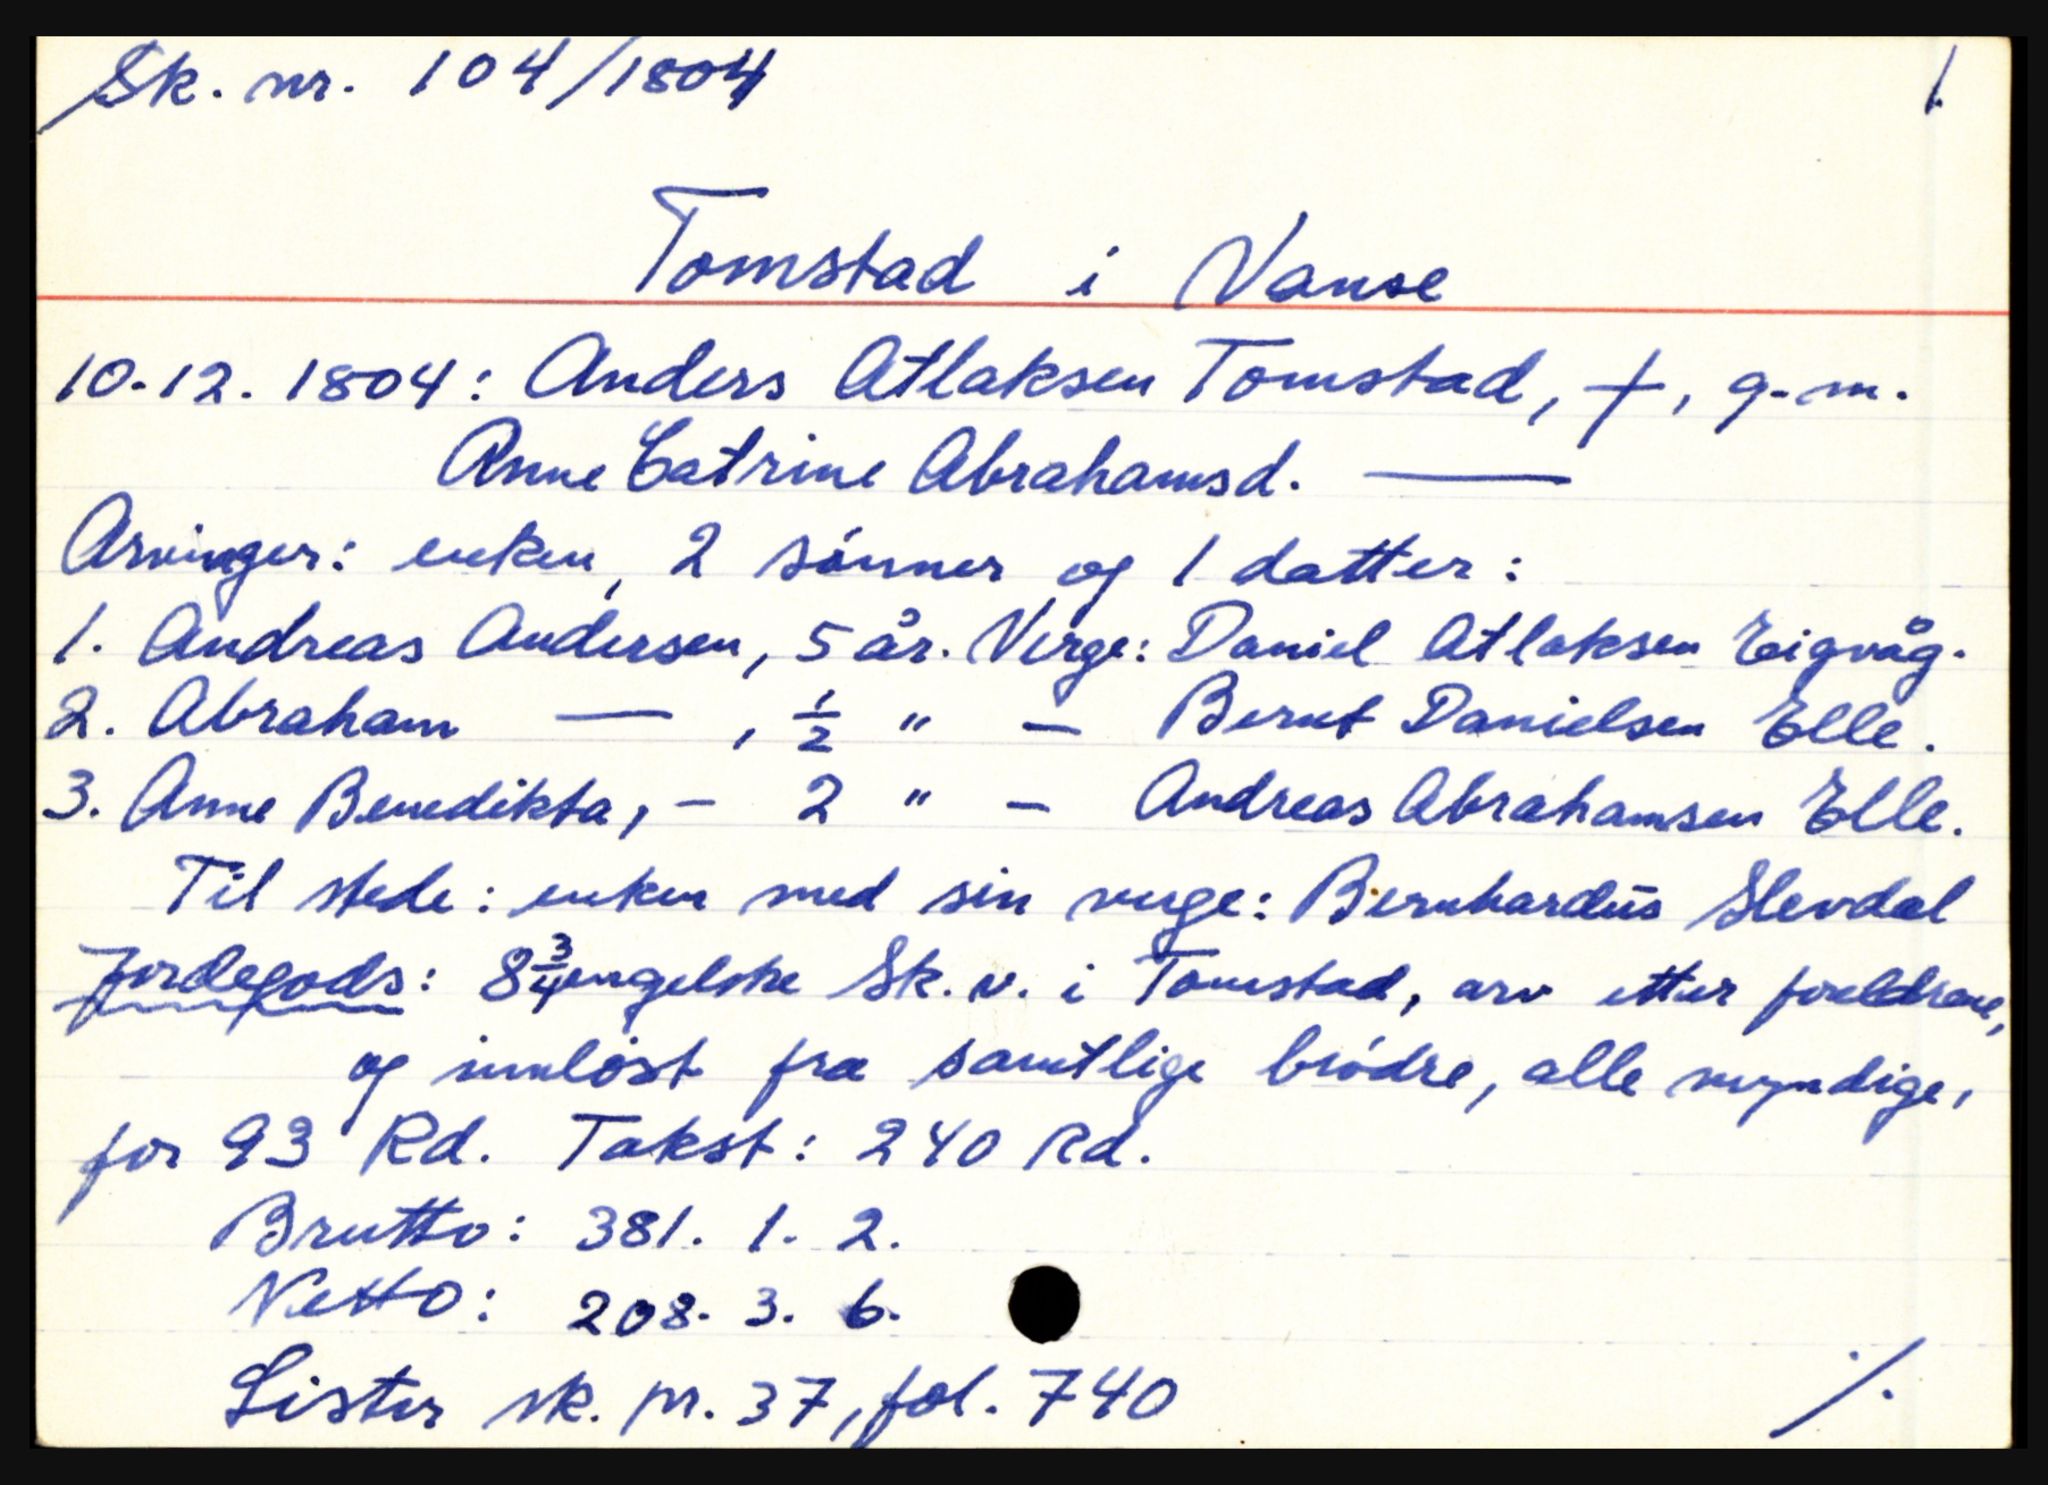 Sk. nr. 104/1804 1.
Tomstad i Vanse
10.12. 1804: Anders Atlaksen Tomstad, †, g. m.
Anne Catrine Abrahamsd. —
Arvinger: enken, 2 sønner og 1 datter:
1. Andreas Andersen, 5 år. Verge: Daniel Atlaksen Eigvåg.
2. Abraham — , ½ " — Bernt Danielsen Elle.
3. Anne Benedikta, – 2 " — Andreas Abrahamsen Elle.
Til stede: enken med sin verge: Bernhardus Slevdal
Jordegods: 8¾ engelske Sk. v. i Tomstad, arv etter foreldrene,
og innløst fra samtlige brødre, alle myndige,
for 93 Rd. Takst: 240 Rd.
Brutto: 381. 1. 2.
Netto: 208. 3. 6.
Lister sk. pr. 37, fol. 740 ./.